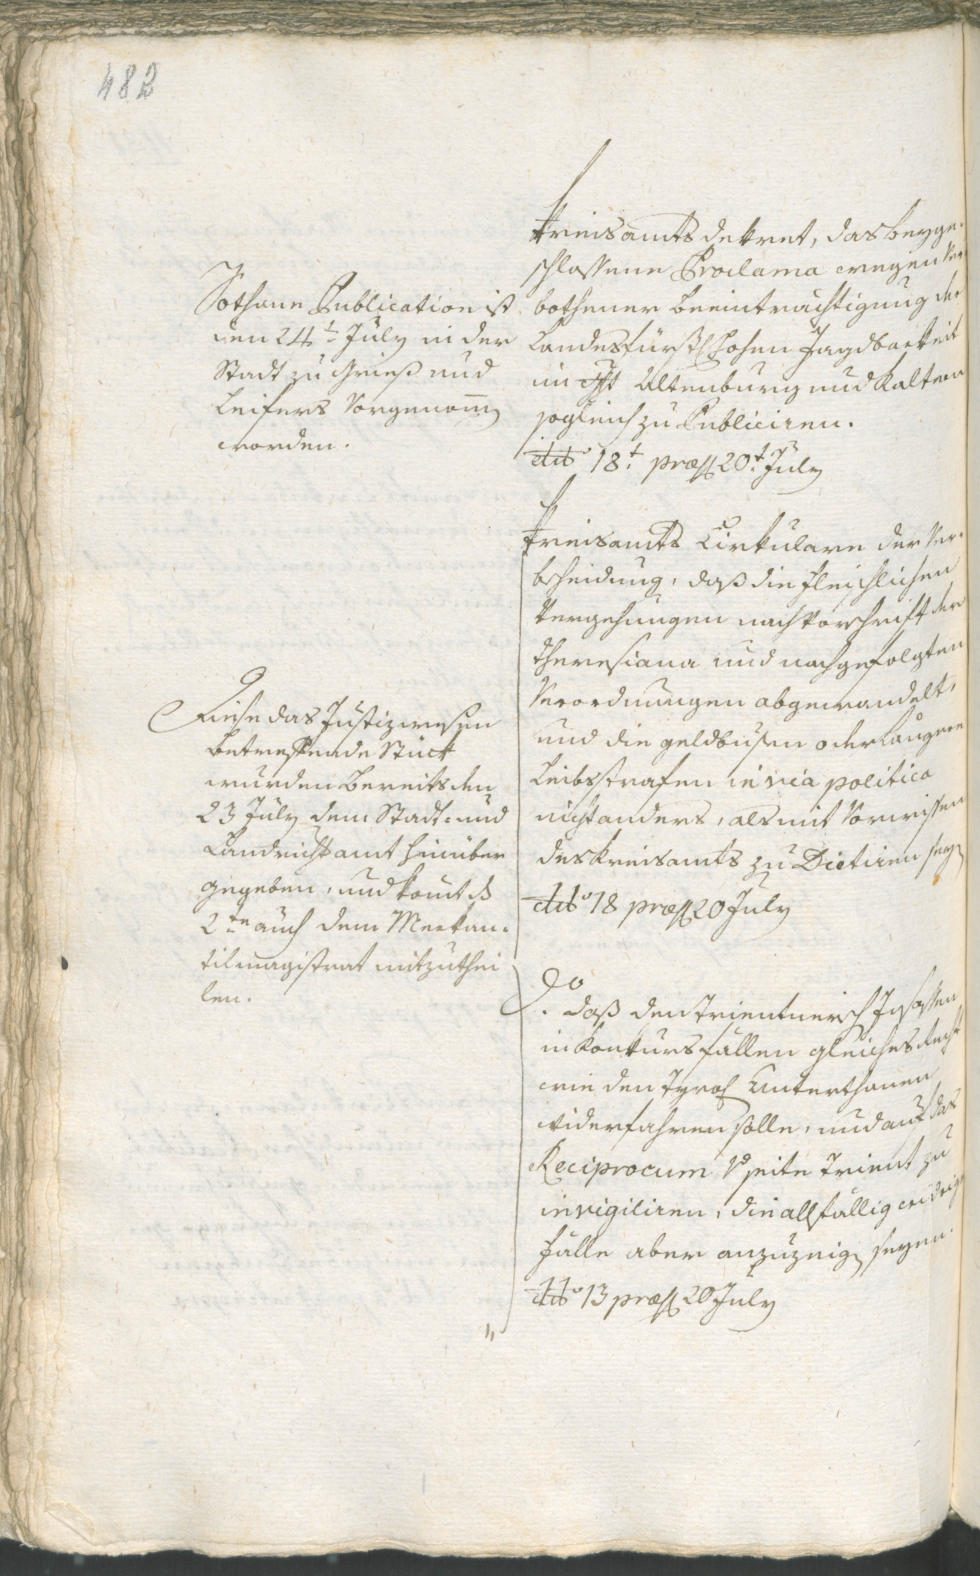 482
Kreisamts dekret, das beyge-
schlossene Proclama wegen ver-
bothener Beeinträchtigung der
Landesfürstl hohen Jagdbarkeit
im Altenburg und Kaltern
sogleich zu Publiciren.
ddto 18t. præs 20t. July
Sothane Publication ist
den 24t July in der
Stadt zu Gries und
Leifers Vorgenom̅
worden.
Kreisamts Cirkulare der Ver-
bscheidung, daß die fleischlichen
Vergehungen nach Vorschrift der
Theresiana und nachgefolgten
Verordnungen abgewandelt,
und die geldbußen oder längere
Leibsstrafen in via politica
nicht anders, als mit Vorwissen
des Kreisamts zu Dictiren seyn
ddto 18 præs 20 July
Diese das Justizwesen
Betreffende Stück
wurden bereits den
23 July dem Stadt- und
Landrichteramt hinüber
gegeben, und komt
2te auch dem Merkan-
tilmagistrat mitzuthei
len.
Do
. daß den Trientnerisch Insassen
in Konkursfällen gleiches Recht
wie den Tyrol Unterthanen
widerfahren solle, und auf das
Reciprocum seite Trient zu
invigiliren, die allfällig widrige
Fälle aber anzuzeigen seyen.
ddto 13 præs 20 July